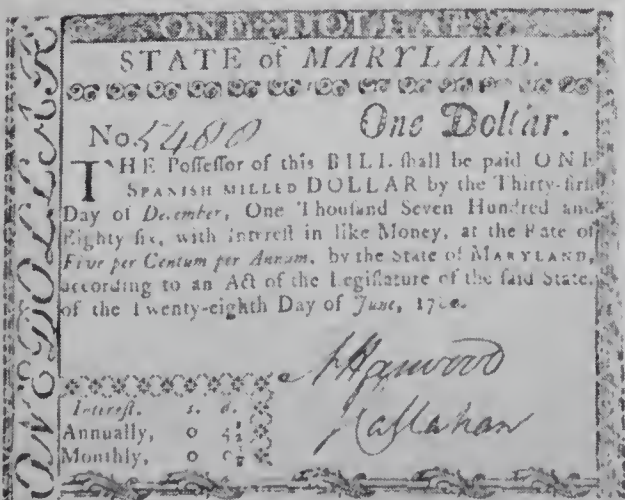 ONE DOLLAR
ONE DOLLAR
STATE of MARYLAND.
No. 5488 One Dollar.
THE Poſſeſſor of this BILL ſhall be paid ONE
SPANISH MILLED DOLLAR by the Thirty-firſt
Day of December, One Thouſand Seven Hundred and
Eighty ſix, with Intereſt in like Money, at the Rate of
Five per Centum per Annum, by the State of MARYLAND,
according to an Act of the Legiſlature of the ſaid State,
of the Twenty-eighth Day of June, 1780.
Harwood
Callahan
Intereſt. s. d.
Annually, 0 4½
Monthly, 0